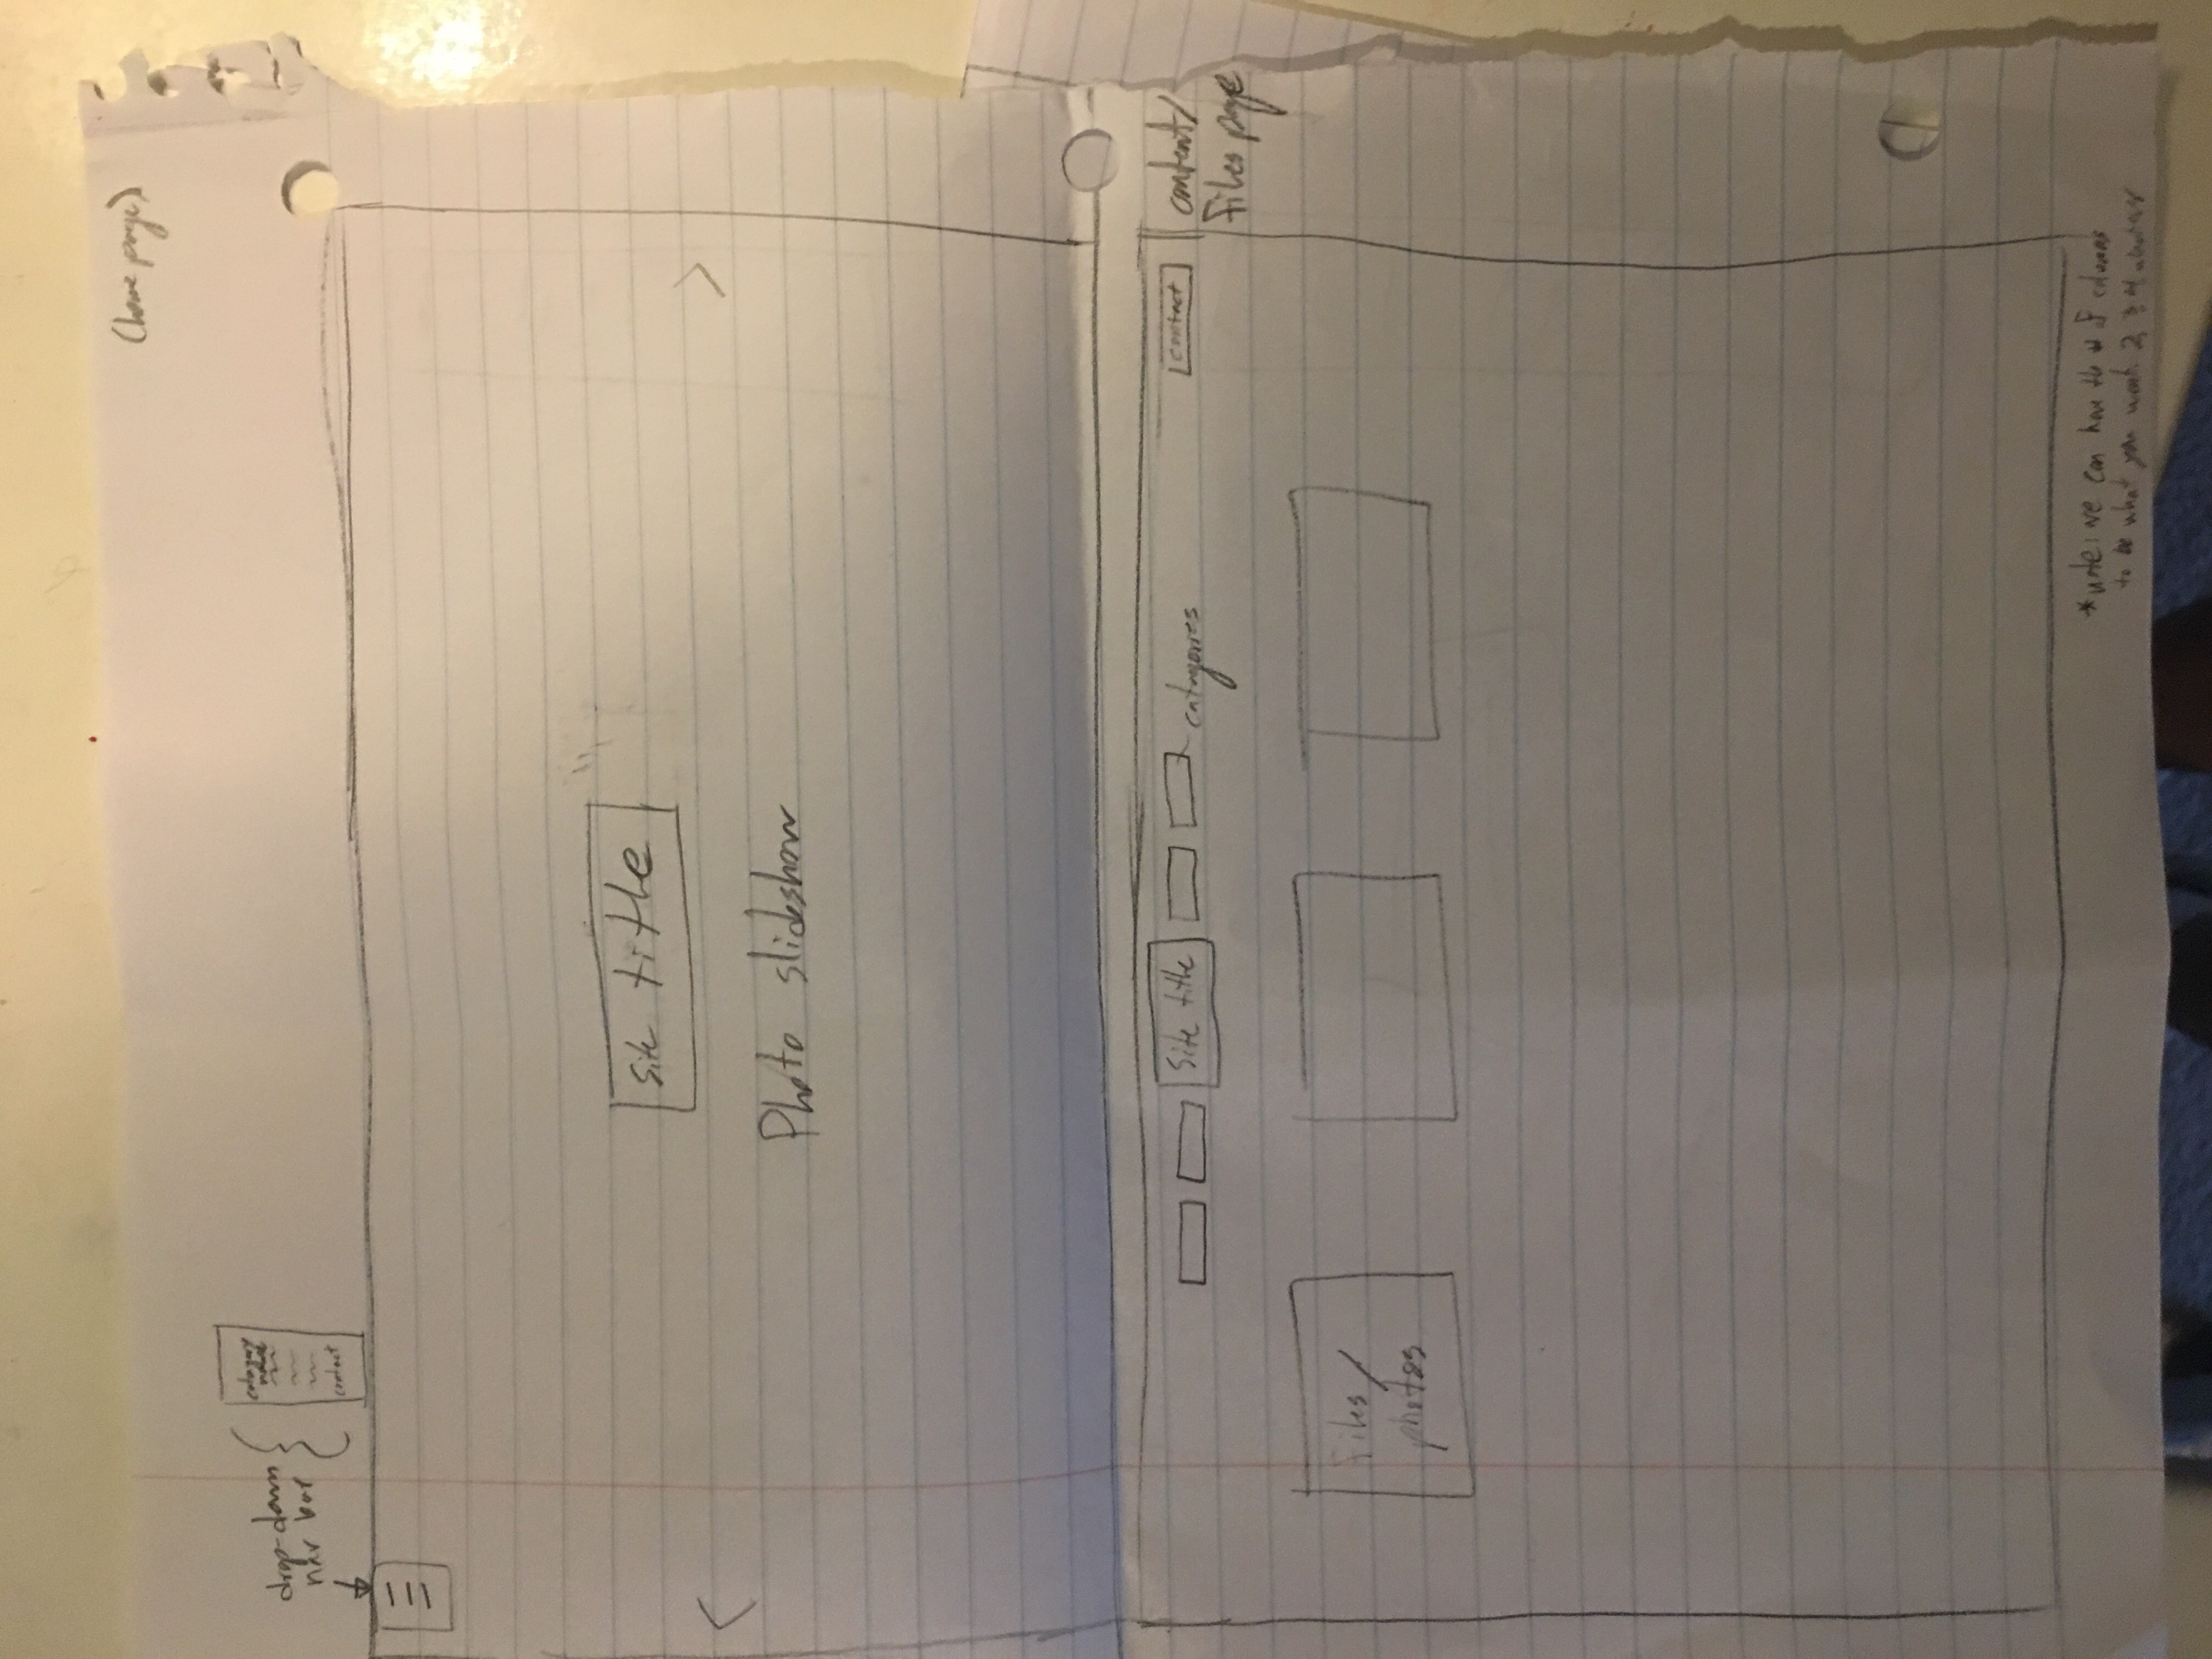 (home page)
catagory
names
contact
drop-down
nav bar
site title
< >
Photo slideshow
Site title
catagories
contact
content/
files page
files/
photos
*note: we can have the # of columns
to be what you want. 2, 3, 4 whatever